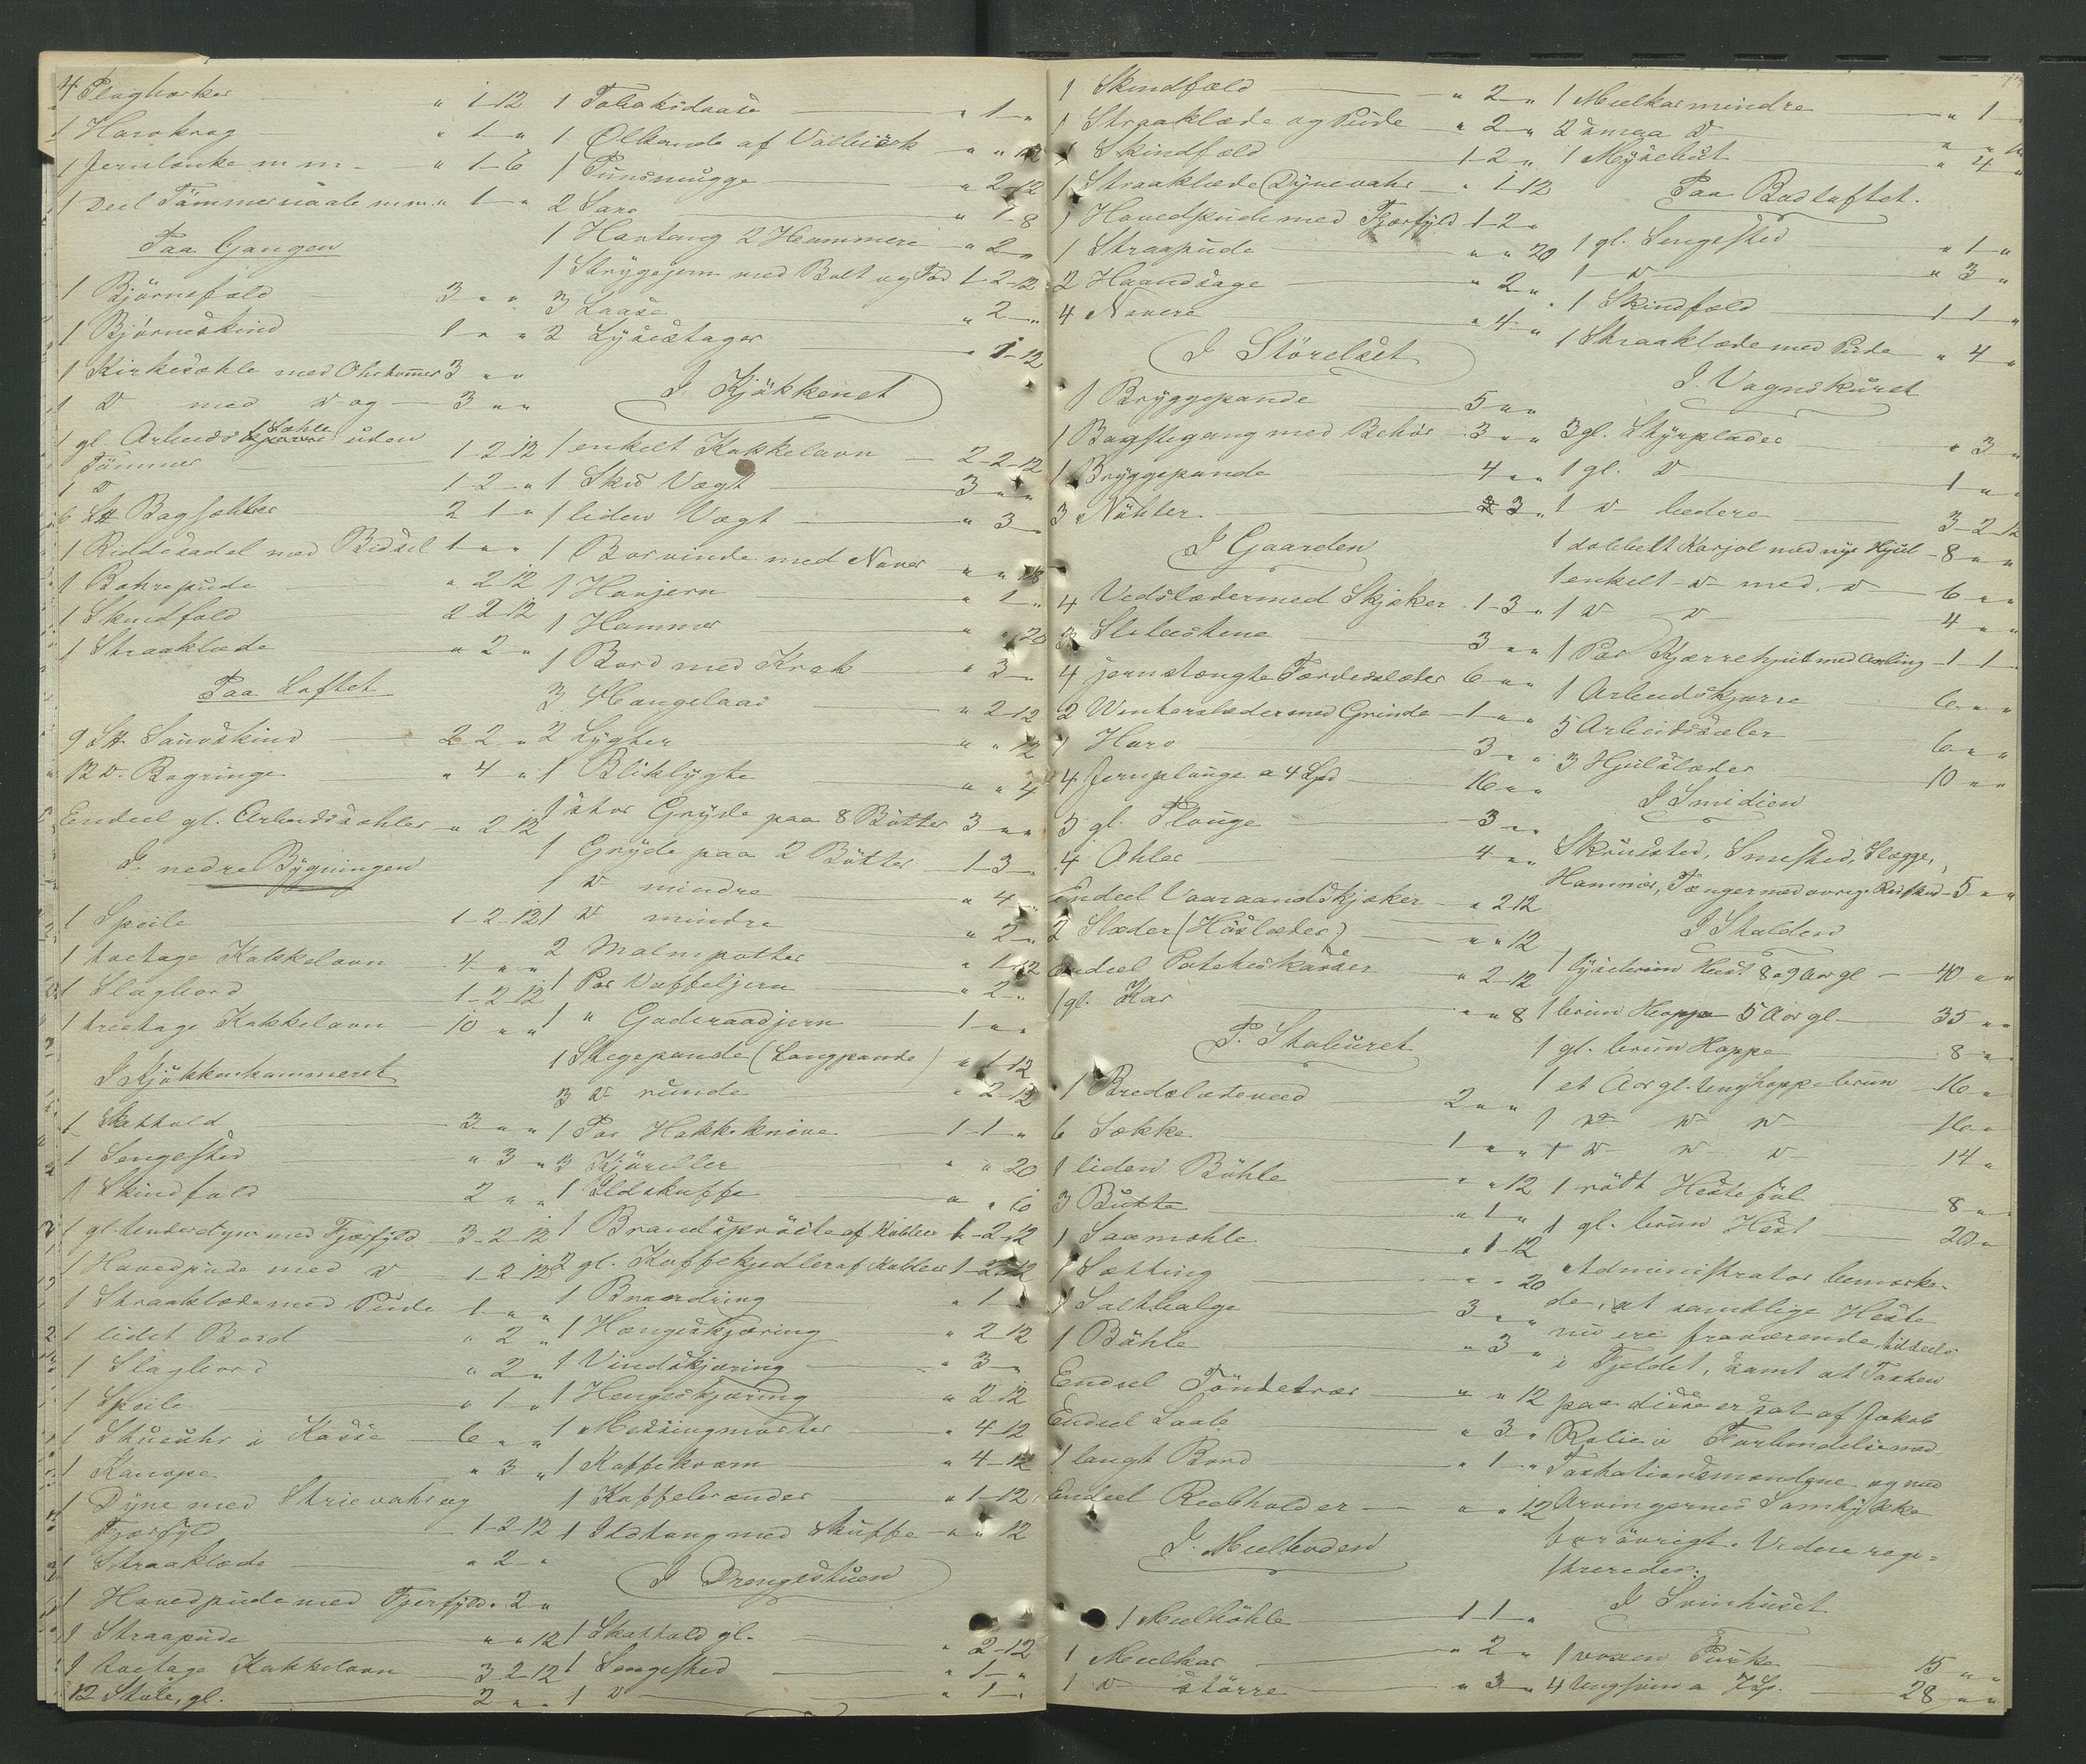 4 Plughorker " 1-12
1 Harokrog " 1 "
1 Jernlænke m m " 1-6
1 Deel Tømmernaale m.m. " 1 "
Paa Gangen
1 Björnefæld 3 " "
1 Björneskind 1 " "
1 Kirkesæhle med 3 " "
1 D med D og 3 " "
1 gl. Arbeidssæhle uden
Tömmer 1-2-12
1 D 1-2 "
2 1 "
1 Riddesadel med Bidsel 1 " "
1 Bohrepude " 2-12
1 Skindfæld 2 2-12
1 Straaklæde " 2 "
Paa Loftet
9 Sauvskind 2 2 "
12 D. Bogringe " 4 "
Endeel gl. Arbeidssæhler " 2 12
I nedre Bygningen
1 Speile 1-2-12
1 toetage Kakkelovn 4 " "
1 Slagbord 1-2-12
1 treetage Kakkelovn 10 " "
I Kjøkkenkammeret
1 Skatthold 3 " "
1 Sengested " 3 "
1 Skindfæld 2 " "
1 gl. Underdyne med Fjærfyld 3-2-12
1 Hovedpude med D 1-2-12
1 Straaklæde med Pude 1 " "
1 lidet Bord " 2 "
1 Slagbord " 2 "
1 Speile " 1 "
1 Stueuhr i Kasse 6 " "
1 Kanape " 3 "
1 Dyne med Strievahr og
Fjærfyld 1-2-12
1 Straaklæde " 2 "
1 Hovedpude med Fjerfyld " 2 "
1 Straapude " " 12
1 toetage Kakkelovn 3 2-12
12 Stole, gl. 2 " "
1 Tobaksdaase " 1 "
1 Ølkande af Valbirk " " 12
1 Punsmugge " 2-12
2 Saxe " 1-8
1 Hovtang 2 Hammere " 2 "
1 Strygejern med Bolt og Fod 1-2-12
3 Laase " 2 "
2 Lysestager " 1-12
I Kjøkkenet
1 enkelt Kakkelovn 2-2-12
1 Skd Vægt 3 " "
1 liden Vægt " 3 "
1 Borvinde med Naver " " 18
1 Hovjern " 1 "
1 Hammer " " 20
1 Bord med Krak " 3 "
3 Hængelaas " 2-12
2 Lygter " " 12
1 Bliklygte " " 4
1 stor Gryde paa 8 Bötter 3 " "
1 Gryde paa 2 Bötter 1-3 "
1 D mindre " 4 "
1 D mindre " 2 "
2 Malmpotter " 1-12
1 Par Vaffeljern " 2 "
1 " Goderaadjern 1 " "
1 Stegepande (Langpande) " 1-12
3 D runde " 2-12
1 Par Hakkeknive 1-1 "
3 Kjöreller " " 20
1 Ildskuffe " " 6
1 Brandspröite af Kobber 1-2-12
2 gl. Kaffekjedler af Kobber 1-2-12
1 Brandring " 1 "
1 Hængeskjæring " 2 12
1 Vindskjæring " 3 "
1 Hengeskjæring " 2 12
1 Messingmorter " 4-12
1 Kaffekværn " 4-12
1 Kaffebrænder " 1-12
1 Ildtang med Skuffe " " 12
I Drengestuen
1 Skatthold gl. " 2-12
1 Sengested " 1 "
1 D " 1 "
1 Skindfæld " 2 "
1 Straaklæde og Pude " 2 "
1 Skindfæld 1-2 "
1 Straaklæde (Dynevahr " 1-12
1 Hovedpude med Fjærfyld 1-2 "
1 Straapude " " 20
2 Haandsage " 2 "
4 Navere " 4 "
I Störelset
1 Bryggepande 5 " "
1 Bagstegang med Behör 3 " "
1 Bryggepande 4 " "
3 Nöhler 3 "
I Gaarden
4 Vedslæder med Skjæker 1-3 "
3 Slibestene 3 " "
4 jernstængte Færdesslæder 6 " "
2 Winterslæder med Grinde 1 " "
1 Harv 3 " "
4 Jernplouge a 4 Spd 16 " "
5 gl. Plouge 3 " "
4 Ahler 4 " "
Endeel Vaaraandskjæker " 2 12
2 Slæder (Höslæder) " " 12
Endeel Poteteskasser " 2-12
1 gl. Kar " " 8
P. Stabüret
1 Bredslædeveed 2 " "
6 Sække 1 " "
1 liden Böhle " " 12
3 Bütte " 1 "
1 Saamohle " 1-12
1 Sætting " " 20
1 Saltbalge 3 " "
1 Böhle " 3 "
Endeel Töndetræ " " 12
Endeel Laale " 3 "
1 langt Bord " 1 "
Endeel Reebhold er " " 12
I Meelboden
1 Meelböhle 1 1 "
1 Meelkar " 2 "
1 D större " 3 "
1 Meelkar mindre " 1 "
2 smaa D
1 Mysebüt " 4 "
Paa Bodloftet.
1 gl. Sengested " 1 "
1 D " 3 "
1 Skindfæld 1 1 "
1 Straaklæde med Pude " 4 "
I Vognskuret
3 gl. Skyrslæder " 3 "
1 gl. D 1 " "
1 D bedere 3-2-12
1 dobbelt Karjol med nye Hjul 8 " "
1 enkelt D med D 6 " "
1 D D 4 " "
1 Par Kjærrehjul med 1-1
1 Arbeidskjærre 6 " "
5 Arbeidssæler 6 " "
3 Hjulslæder 10 " "
I Smidien
Skruested, Smested, Slægge,
Hammer, Tænger med øvrige Redskab 5 " "
I Stalden
1 lysebrun Hest 8 a 9 Aar gl 40 " "
1 brun Hoppe 5 Aar gl 35 " "
1 gl. brun Hoppe 8 "
1 et Aar gl. Unghoppe brun 16 "
1 D D D 16 "
1 D D D 14 "
1 rödt Hestefül 8 "
1 gl. brün Hest 20 "
Administrator bemærke-
de, at samtlige Heste
nu ere fraværende tildeels
i Fjeldet, samt at Taxten
paa disse er sat af Jakob
i Forbindelse med
Taxtationsmændene og med
Arvingernes Samtykke
forövrigt. Videre regi-
streredes:
I Svinhuset
1 voxen Purke 15 " "
4 Ungsvin a 7 Sp. 28 " "